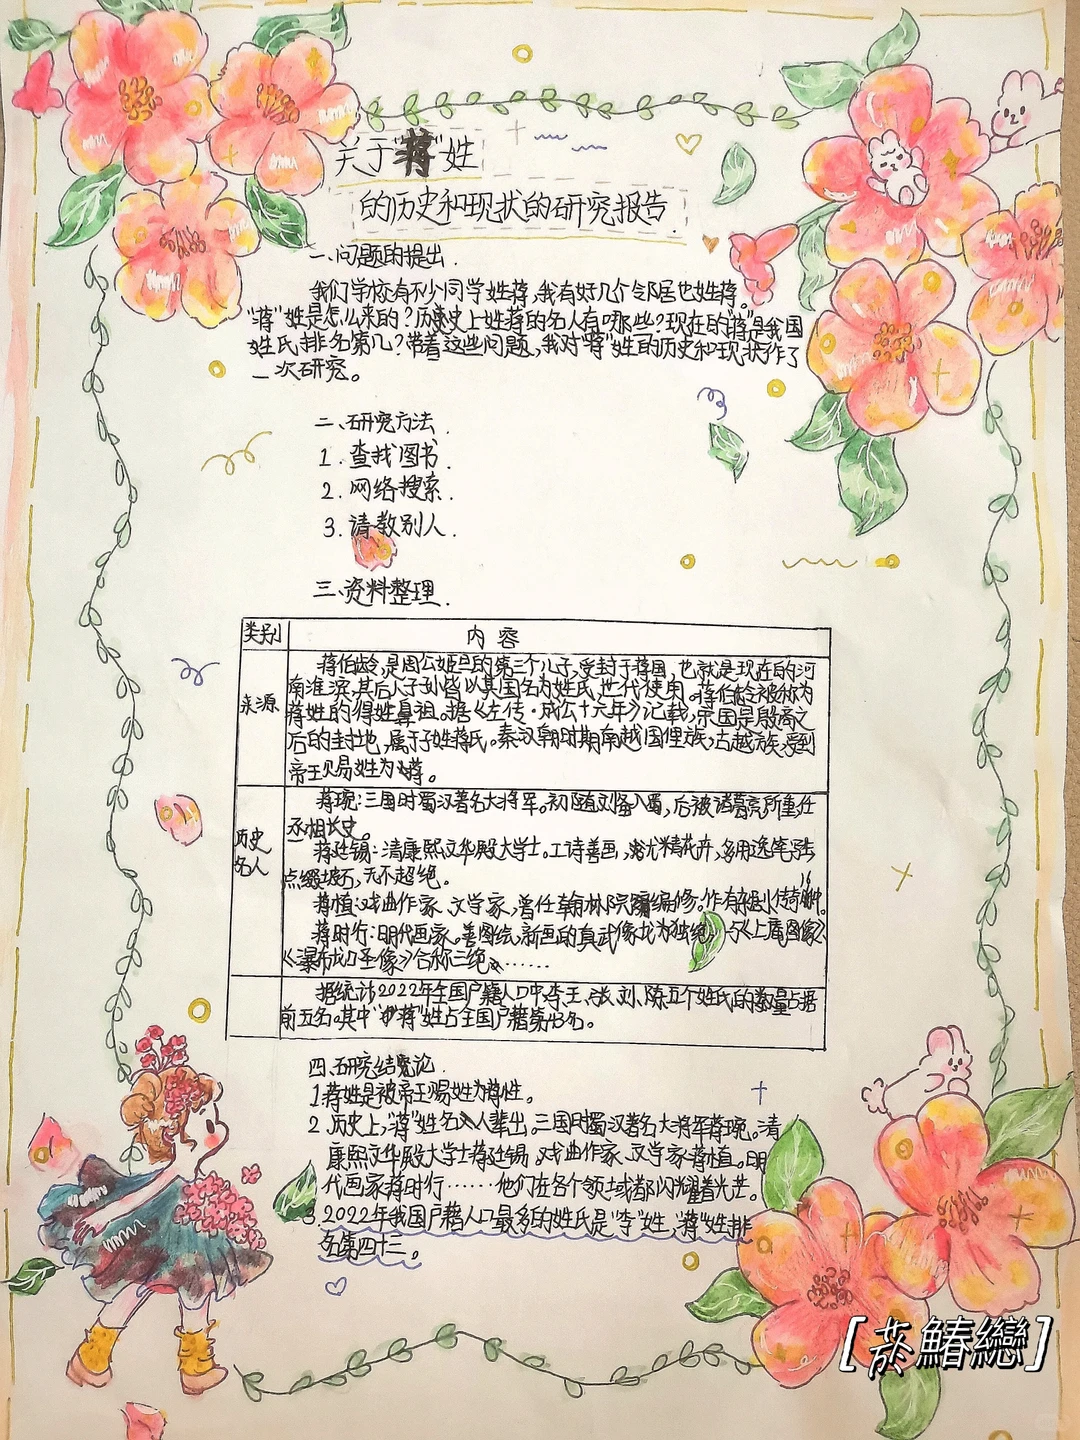 关于“蒋”姓
的历史和现状的研究报告.
一、问题的提出.
我们学校有不少同学姓蒋,我有好几个邻居也姓蒋。
“蒋”姓是怎么来的?历史上姓蒋的名人有哪些?现在的“蒋”是我国
姓氏排名第几?带着这些问题,我对“蒋”姓的历史和现状作了
一次研究。
二、研究方法.
1.查找图书.
2.网络搜索.
3.请教别人.
三、资料整理.
类别 内容
来源
蒋伯龄,是周公姬旦的第三个儿子,受封于蒋国,也就是现在的河
南淮滨,其后人子孙皆以其国名为姓氏,世代使用。蒋伯龄被称为
蒋姓的得姓鼻祖。据《左传·成公十六年》记载,宗国是殷商之
后的封地,属于子姓蒋氏。秦汉朝时期南越国俚族,古越族,受到
帝王赐姓为蒋。
历史
名人
蒋琬:三国时蜀汉著名大将军。初随刘备入蜀,后被诸葛亮所重任
丞相长史。
蒋廷锡:清康熙文华殿大学士。工诗善画,尤精花卉,多用逸笔
点缀坡石,无不超绝。
蒋慎:戏曲作家、文学家,曾任翰林院编修。作有杂剧传奇16种。
蒋时行:明代画家。善图绘,新画的真武像尤为独绝,与《上庵图像》、
《瀑布龙口圣像》合称三绝。……
据统计2022年全国户籍人口中,李、王、张、刘、陈五个姓氏的数量占据
前五名。其中“蒋”姓占全国户籍第43名。
四、研究结论.
1.蒋姓是被帝王赐姓为蒋性。
2.历史上,“蒋”姓名人辈出。三国时蜀汉著名大将军蒋琬。清
康熙文华殿大学士蒋廷锡。戏曲作家、文学家蒋慎。明
代画家蒋时行……他们在各个领域都闪耀着光芒。
3.2022年我国户籍人口最多的姓氏是“李”姓,“蒋”姓排
名第四十三。
[菸鰆戀]